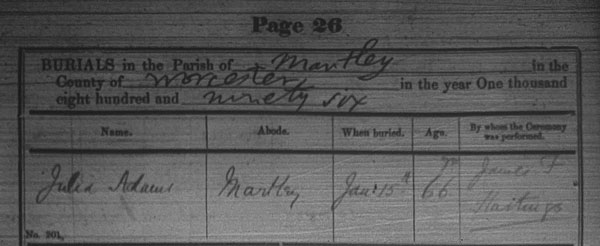 Page 26
BURIALS in the Parish of Martley in the
County of Worcester in the year One thousand
eight hundred and ninety six
Name. Abode. When buried. Age. By whom the Ceremony was performed.
Julia Adams Martley Jan: 15th 66 James F Hastings
No. 901,